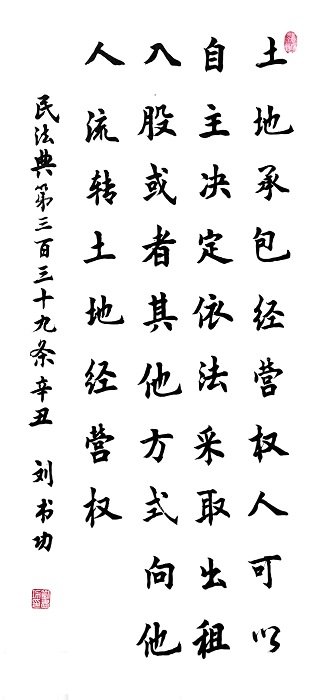 土地承包经营权人可以
自主决定依法采取出租
入股或者其他方式向他
人流转土地经营权
民法典第三百三十九条辛丑 刘书功